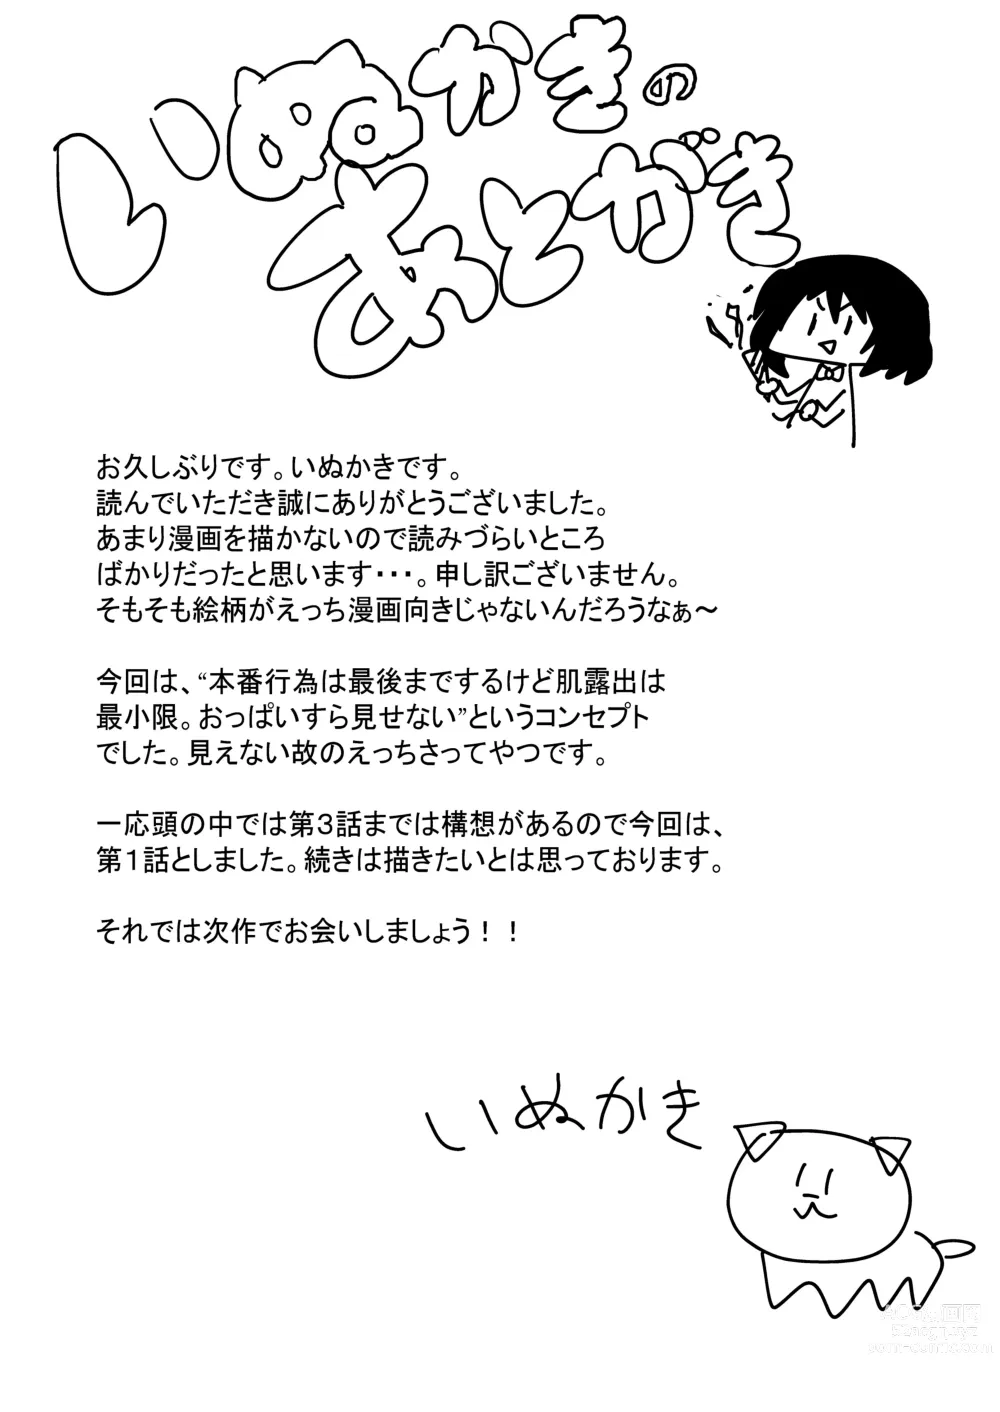 いぬかきの
あとがき
お久しぶりです。いぬかきです。
読んでいただき誠にありがとうございました。
あまり漫画を描かないので読みづらいところ
ばかりだったと思います・・・。申し訳ございません。
そもそも絵柄がえっち漫画向きじゃないんだろうなぁ～
今回は、“本番行為は最後までするけど肌露出は
最小限。おっぱいすら見せない”というコンセプト
でした。見えない故のえっちさってやつです。
一応頭の中では第３話までは構想があるので今回は、
第１話としました。続きは描きたいとは思っております。
それでは次作でお会いしましょう！！
いぬかき